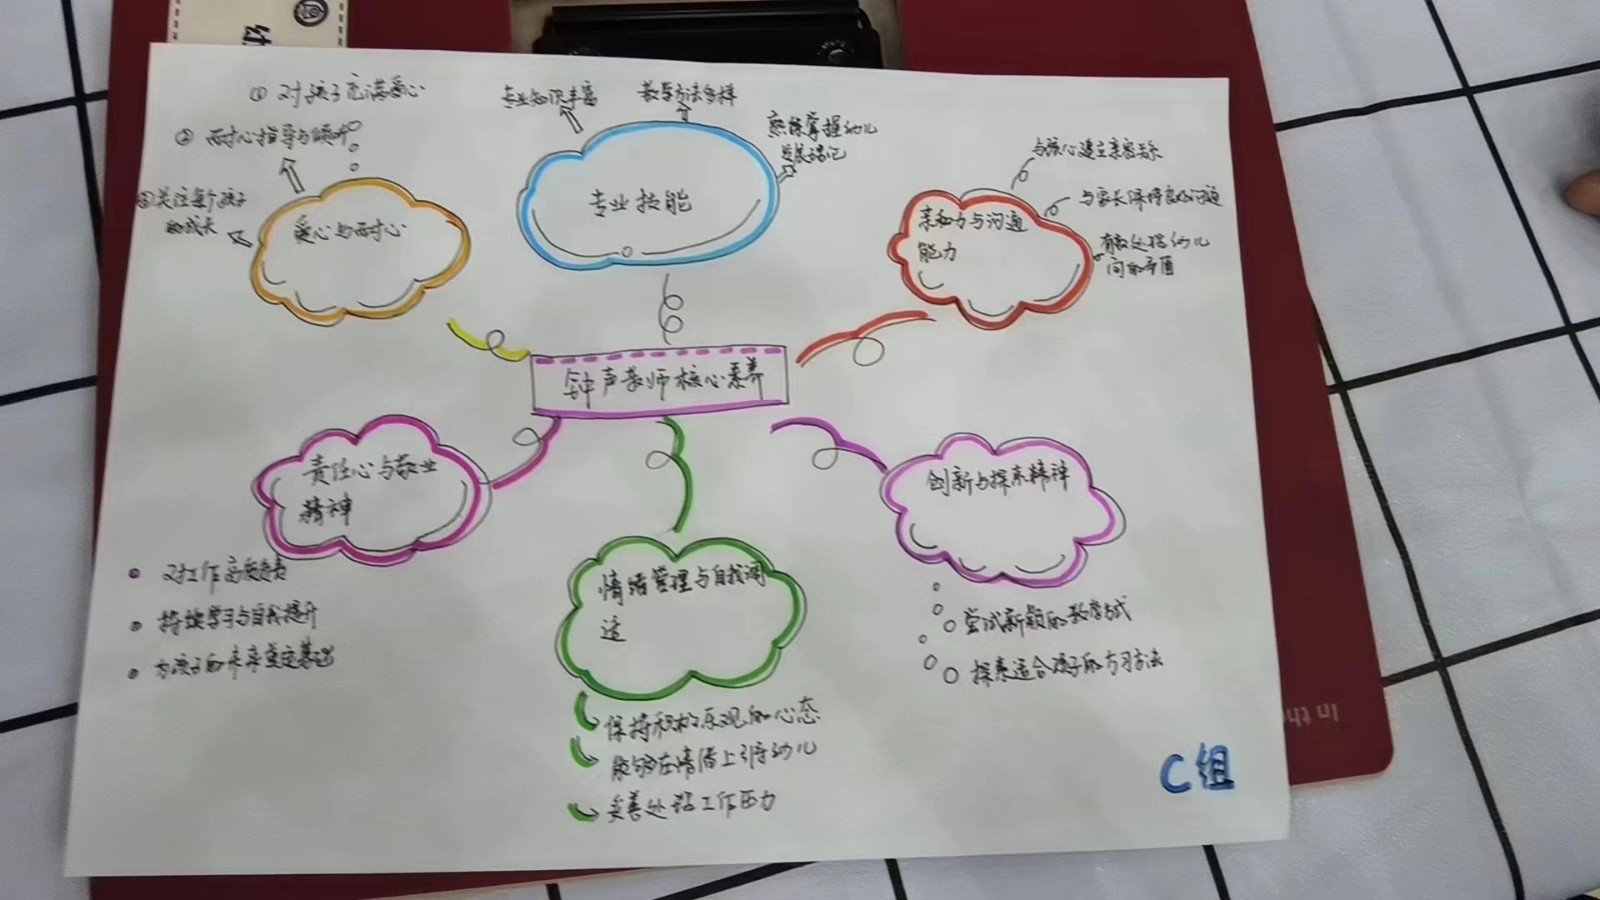 ① 对孩子充满爱心
② 耐心指导与倾听
③关注每个孩子
的成长
爱心与耐心
专业知识丰富
教学方法多样
熟练掌握幼儿
专业技能
与孩心建立亲密关系
与家长保持良好沟通
有效处理幼儿
间的矛盾
亲和力与沟通
能力
钟声教师核心素养
责任心与敬业
精神
对工作高度负责
持续学习与自我提升
为孩子的未来奠定基础
情绪管理与自我调
适
保持积极乐观的心态
能够在情绪上引导幼儿
妥善处理工作压力
创新与探索精神
尝试新颖的教学方式
探索适合孩子的学习方法
C组
In the
幼